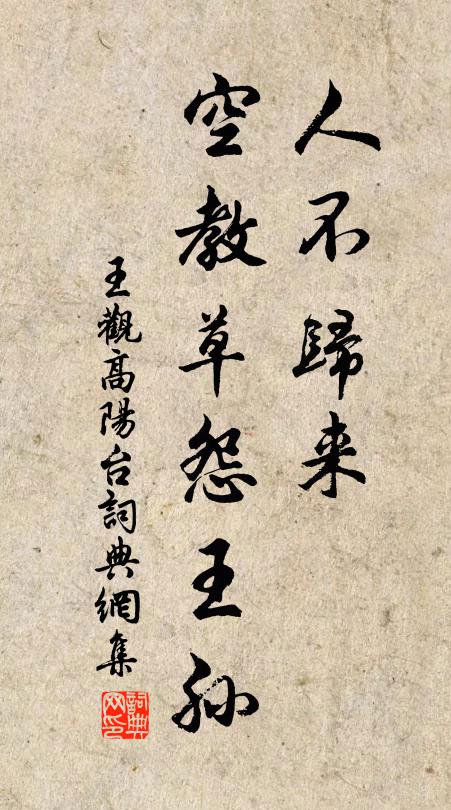 人不歸来
空教草怨王孫
王觀高陽台詞典網集
詞典网印